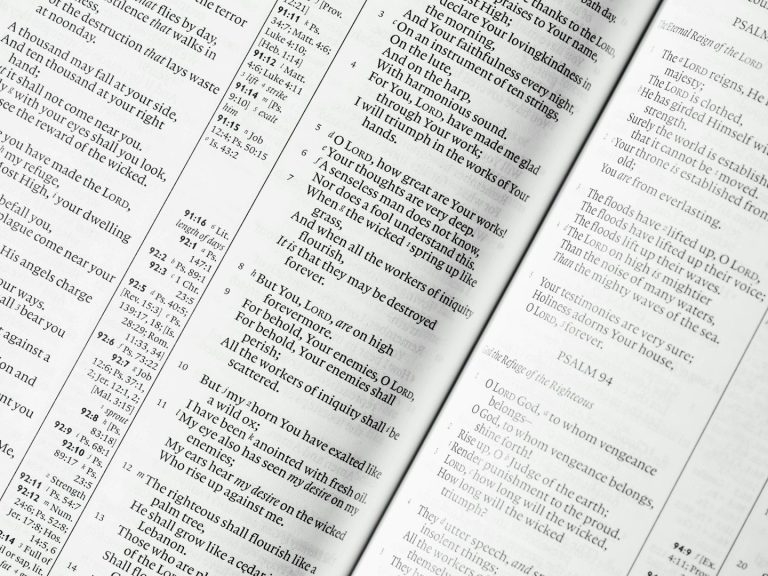 the terror
that flies by day,
pestilence that walks in
of the destruction that lays waste
at noonday.
A thousand may fall at your side,
And ten thousand at your right
hand;
it shall not come near you.
with your eyes shall you look,
see the reward of the wicked.
you have made the LORD,
my refuge,
Most High, your dwelling
befall you,
plague come near your
His angels charge
your ways.
shall bear you
against a
Me,
91:11 k Ps.
34:7; Matt. 4:6;
Luke 4:10;
[Heb. 1:14]
91:12 l Matt.
4:6; Luke 4:11
91:14 m [Ps.
9:10]
him
91:15 n Job
12:4; Ps. 50:15
o Is. 43:2
91:16 Lit.
length of days
92:1 a Ps.
147:1
92:2 b Ps. 89:1
92:3 c 1 Chr.
23:5
92:5 d Ps. 40:5;
[Rev. 15:3]
139:17, 18; [Is.
28:29; Rom.
11:33, 34]
92:6 f Ps. 73:22
92:7 g Job
12:6; Ps. 37:1,
2; Jer. 12:1, 2;
[Mal. 3:15]
sprout
92:8 h [Ps.
83:18]
92:9 i Ps. 68:1
92:10 j Ps.
89:17 k Ps.
23:5
92:11 l Ps. 54:7
92:12 m Num.
24:6; Ps. 52:8;
Jer. 17:8; Hos.
14:5, 6
give thanks to the LORD,
praises to Your name,
Most High;
declare Your lovingkindness in
the morning,
And Your faithfulness every night,
3 c On an instrument of ten strings,
On the lute,
And on the harp,
With harmonious sound.
4 For You, LORD, have made me glad
through Your work;
I will triumph in the works of Your
hands.
5 d O LORD, how great are Your works!
e Your thoughts are very deep.
6 f A senseless man does not know,
Nor does a fool understand this.
7 When g the wicked spring up like
grass,
And when all the workers of iniquity
flourish,
It is that they may be destroyed
forever.
8 h But You, LORD, are on high
forevermore.
9 For behold, Your enemies, O LORD,
For behold, Your enemies shall
perish;
All the workers of iniquity shall i be
scattered.
10 But j my horn You have exalted like
a wild ox;
I have been k anointed with fresh oil.
11 l My eye also has seen my desire on my
enemies;
My ears hear my desire on the wicked
Who rise up against me.
12 m The righteous shall flourish like a
palm tree,
He shall grow like a cedar in
Lebanon.
13 Those who are
of the LORD
Shall
14
PSALM
The Eternal Reign of the LORD
1 The a LORD reigns, He
majesty;
The LORD is clothed,
b He has girded Himself
strength.
Surely the world is established
that it cannot be moved.
2 c Your throne is established from
old;
You are from everlasting.
3 The floods have lifted up, O LORD,
The floods have lifted up their voice;
The floods lift up their waves.
4 d The LORD on high is mightier
Than the noise of many waters,
Than the mighty waves of the sea.
5 Your testimonies are very sure;
Holiness adorns Your house,
O LORD, forever.
PSALM 94
God the Refuge of the Righteous
1 O LORD God, a to whom vengeance
belongs—
O God, to whom vengeance belongs,
shine forth!
2 Rise up, O b Judge of the earth;
Render punishment to the proud.
3 LORD, c how long will the wicked,
How long will the wicked
triumph?
4 They d utter speech, and
insolent things;
All the workers of
5 They
94:9 f [Ex.
4:11; Prov.
20